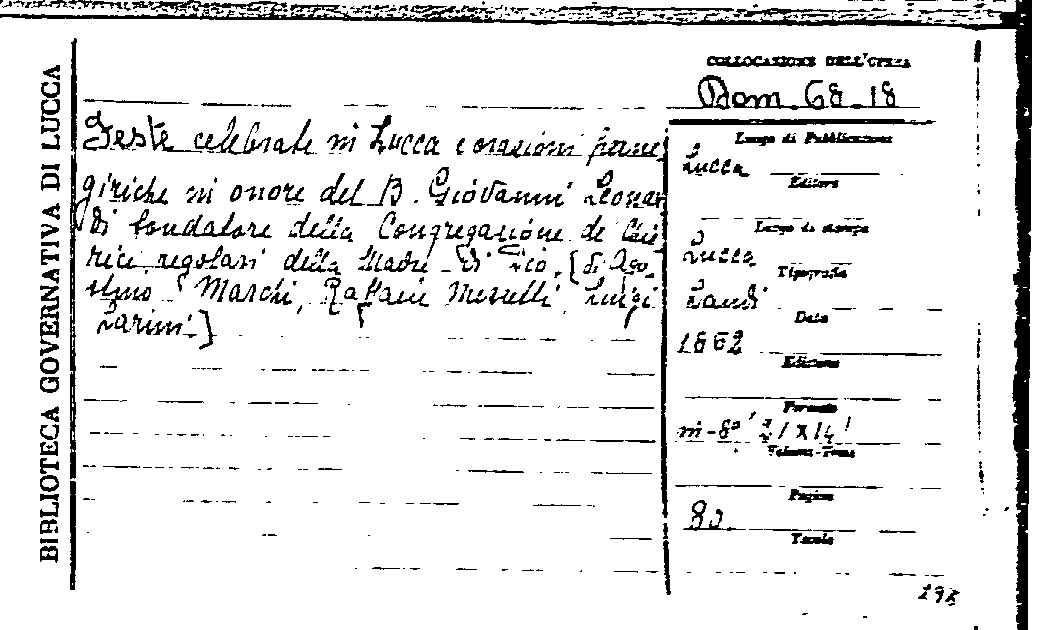 BIBLIOTECA GOVERNATIVA DI LUCCA
COLLOCAZIONE DELL'OPERA
Dom. 68-18
Feste celebrate in Lucca e orazioni pane
giriche in onore del B. Giovanni Leonar
di fondatore della Congregazione de Chie
rici regolari della Madre di Dio. [di Ago-
stino Marchi, Raffaele Luigi
Luogo di Pubblicazione
Lucca
Editore
Luogo di stampa
Lucca
Tipografia
Landi
Data
1862
Edizione
Formato
in-8° 21x14
Volume-Tomo
Pagine
80
Tavole